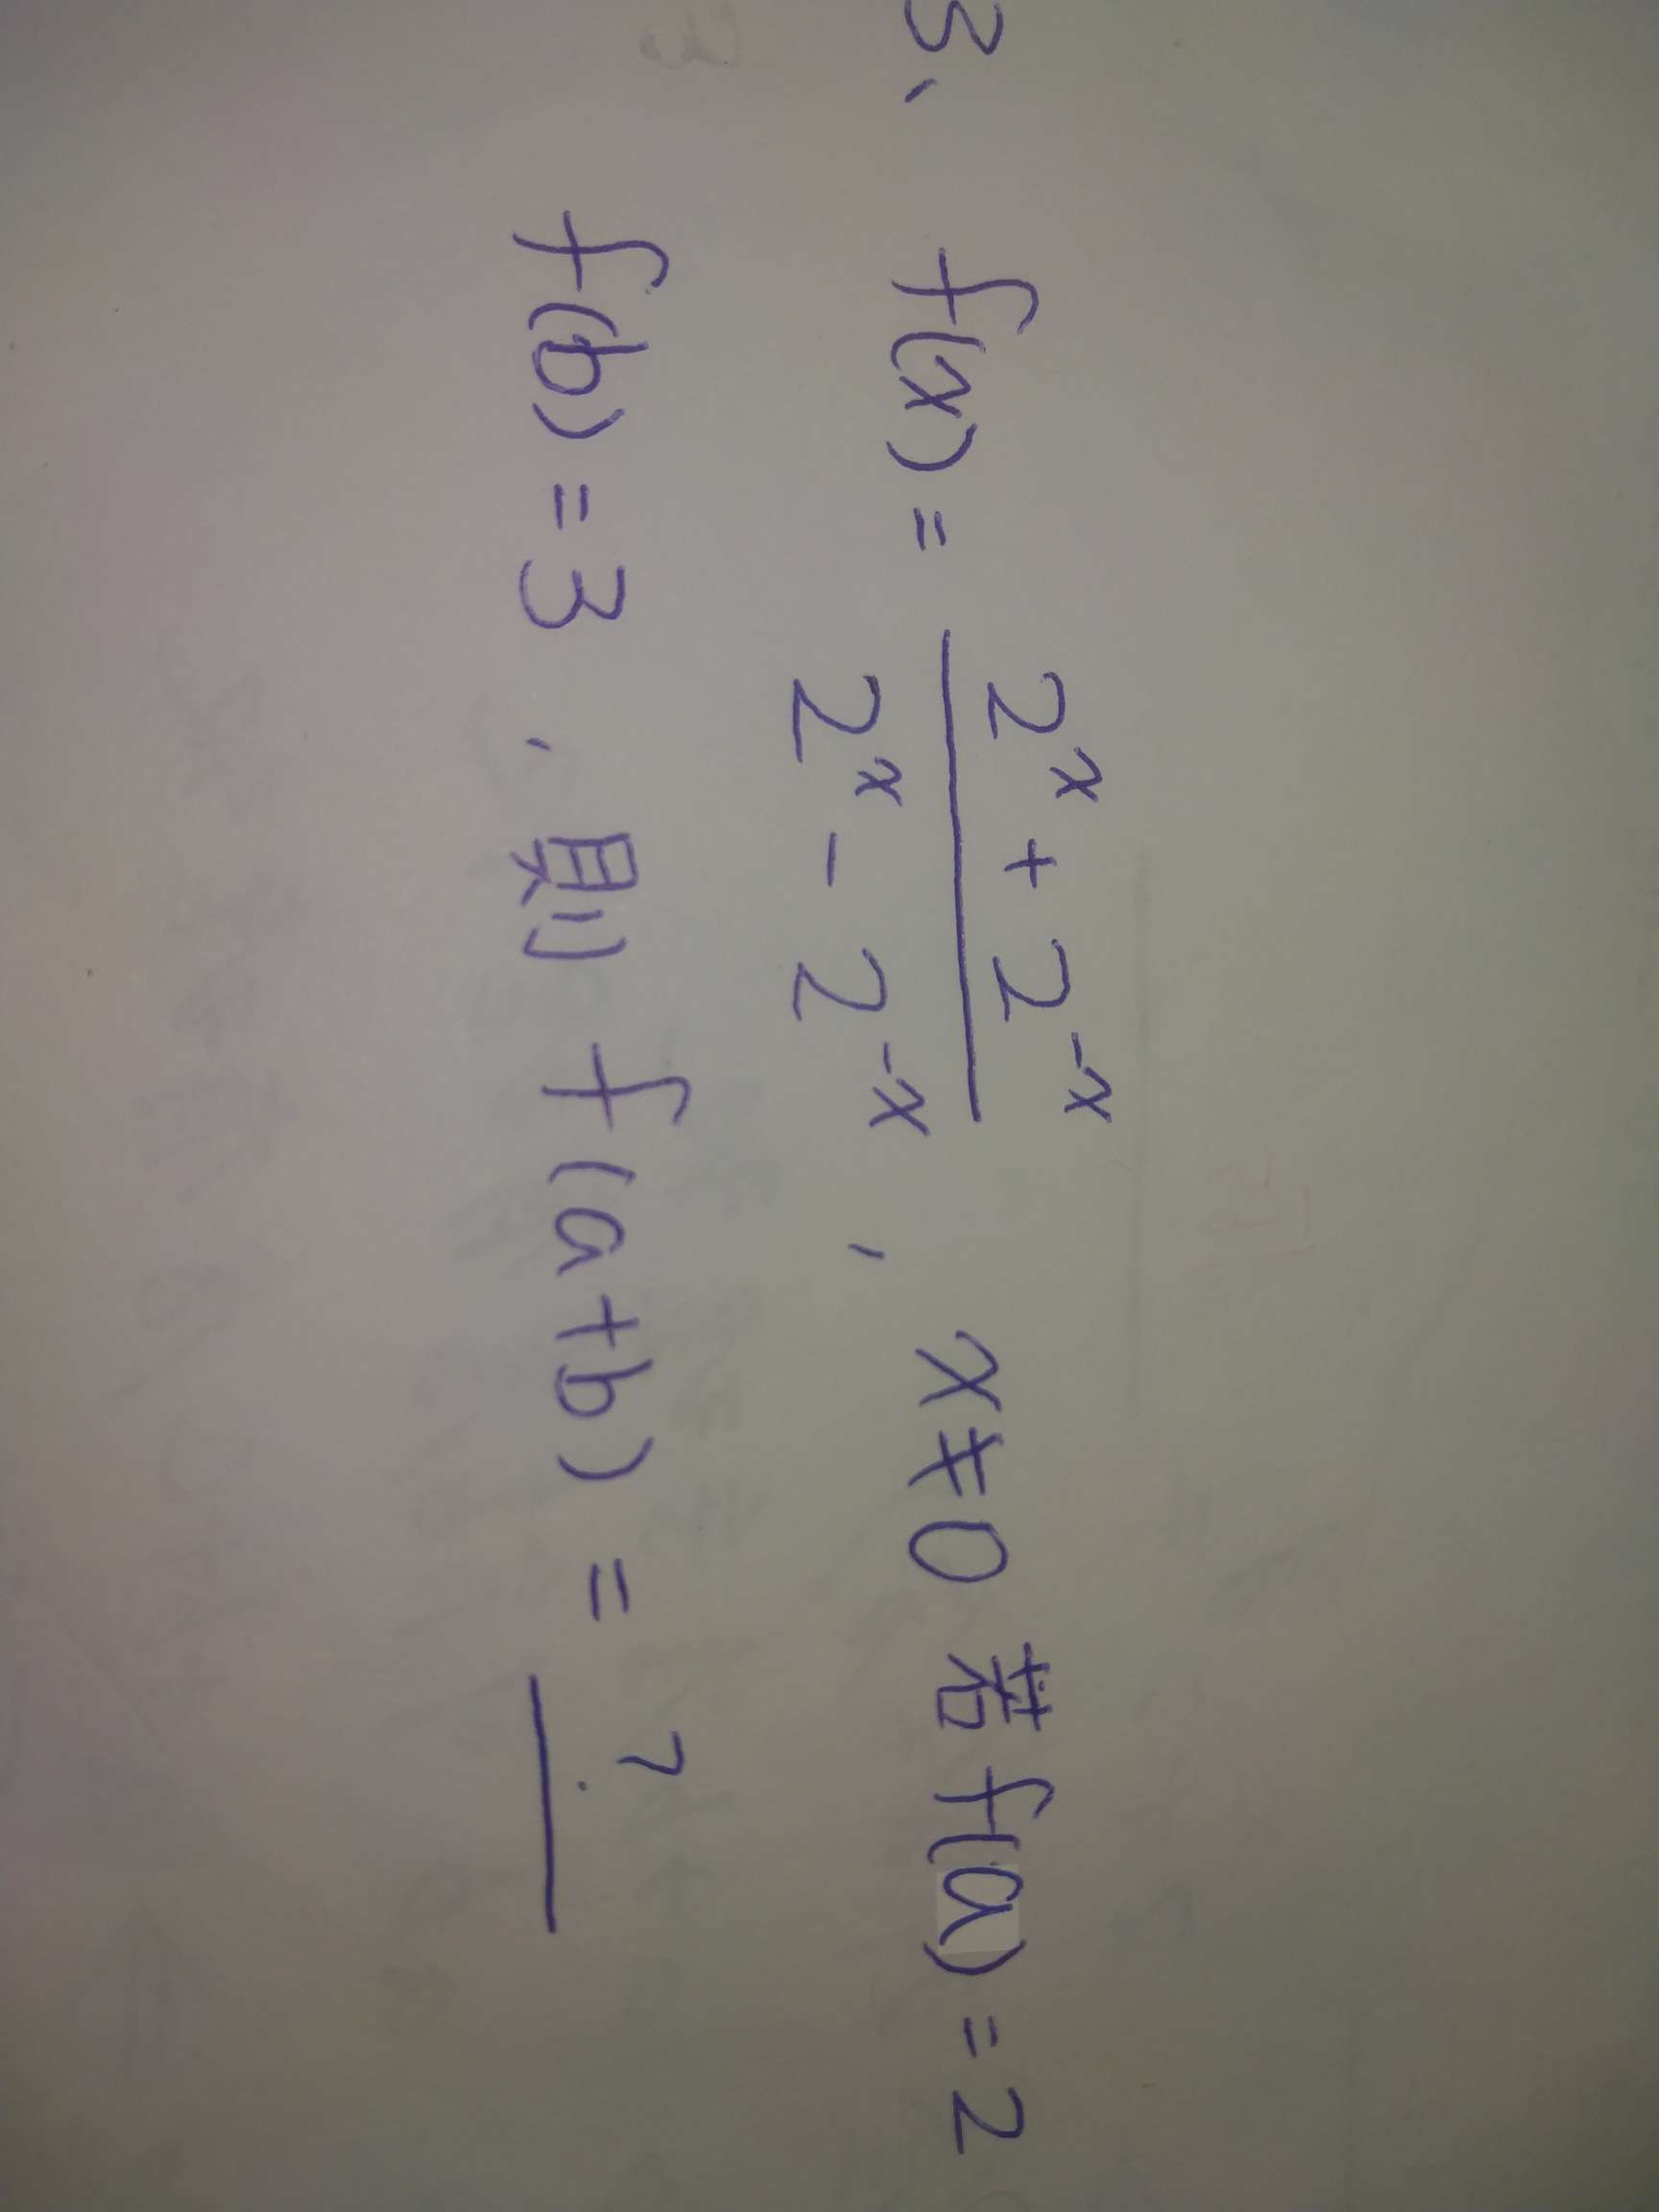 3、 f(x) = \frac{2^x + 2^{-x}}{2^x - 2^{-x}} , x≠0 若 f(a) = 2
f(b) = 3 , 則 f(a+b) = ?